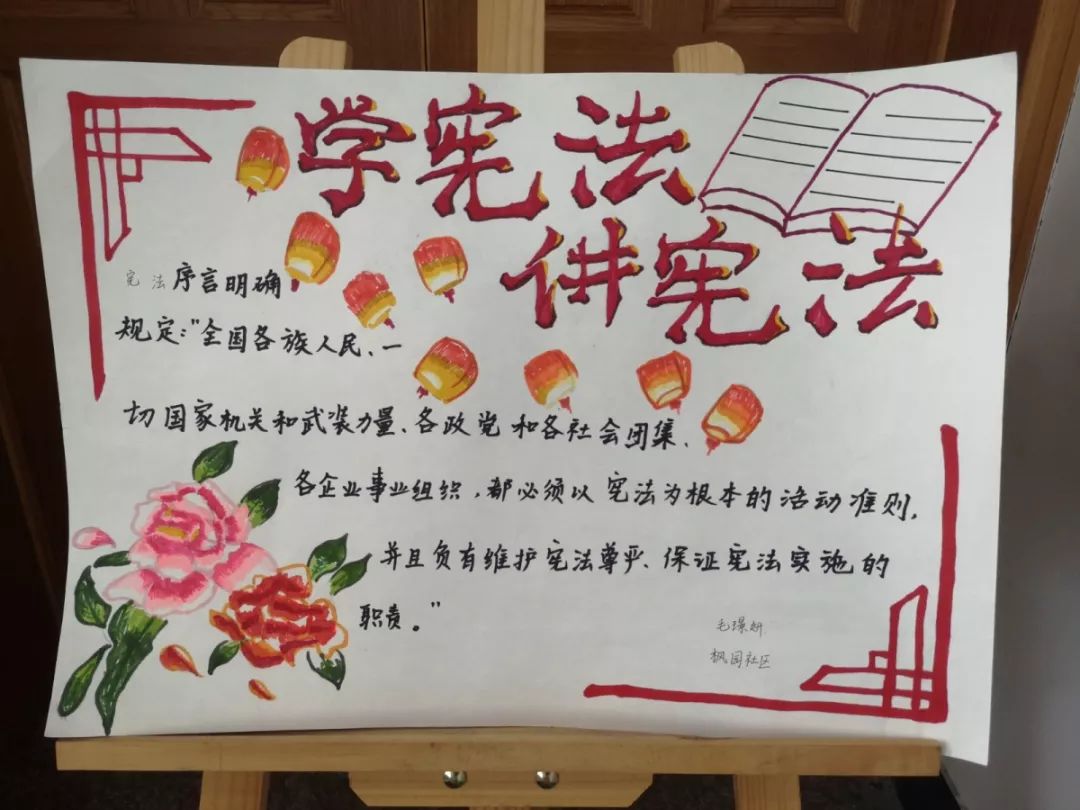 学宪法
讲宪法
宪法序言明确
规定:"全国各族人民、一
切国家机关和武装力量、各政党和各社会团集、
各企业事业组织,都必须以宪法为根本的活动准则,
并且负有维护宪法尊严、保证宪法实施的
职责。"
毛璟妍
枫园社区